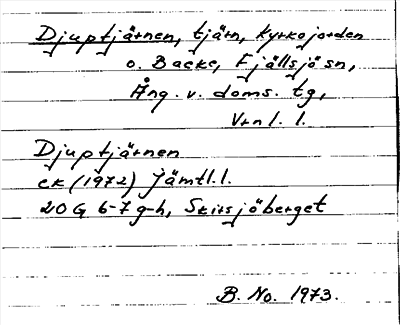 Djuptjärnen, tjärn, Kyrkojorden
o. Backe, Fjällsjö sn,
Ång. v. doms. tg,
Vrnl. l.
Djuptjärnen
ek (1972) Jämtl.l.
20 G 6-7 g-h, Skirsjöberget
B. No. 1973.